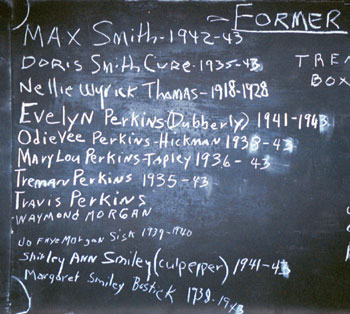 FORMER
MAX Smith - 1942-43
DORIS Smith Cure - 1935-43
TREM
BOX
Nellie Wyrick Thomas - 1918-1928
Evelyn Perkins (Dubberly) 1941-1943
OdieVee Perkins-Hickman 1938-43
MaryLou Perkins-Tapley 1936-43
Treman Perkins 1935-43
Travis Perkins
WAYMOND MORGAN
Jo Faye Morgan Sisk 1939-1940
Shirley ANN Smiley (Culpepper) 1941-43
Margaret Smiley Bostick 1938-1943